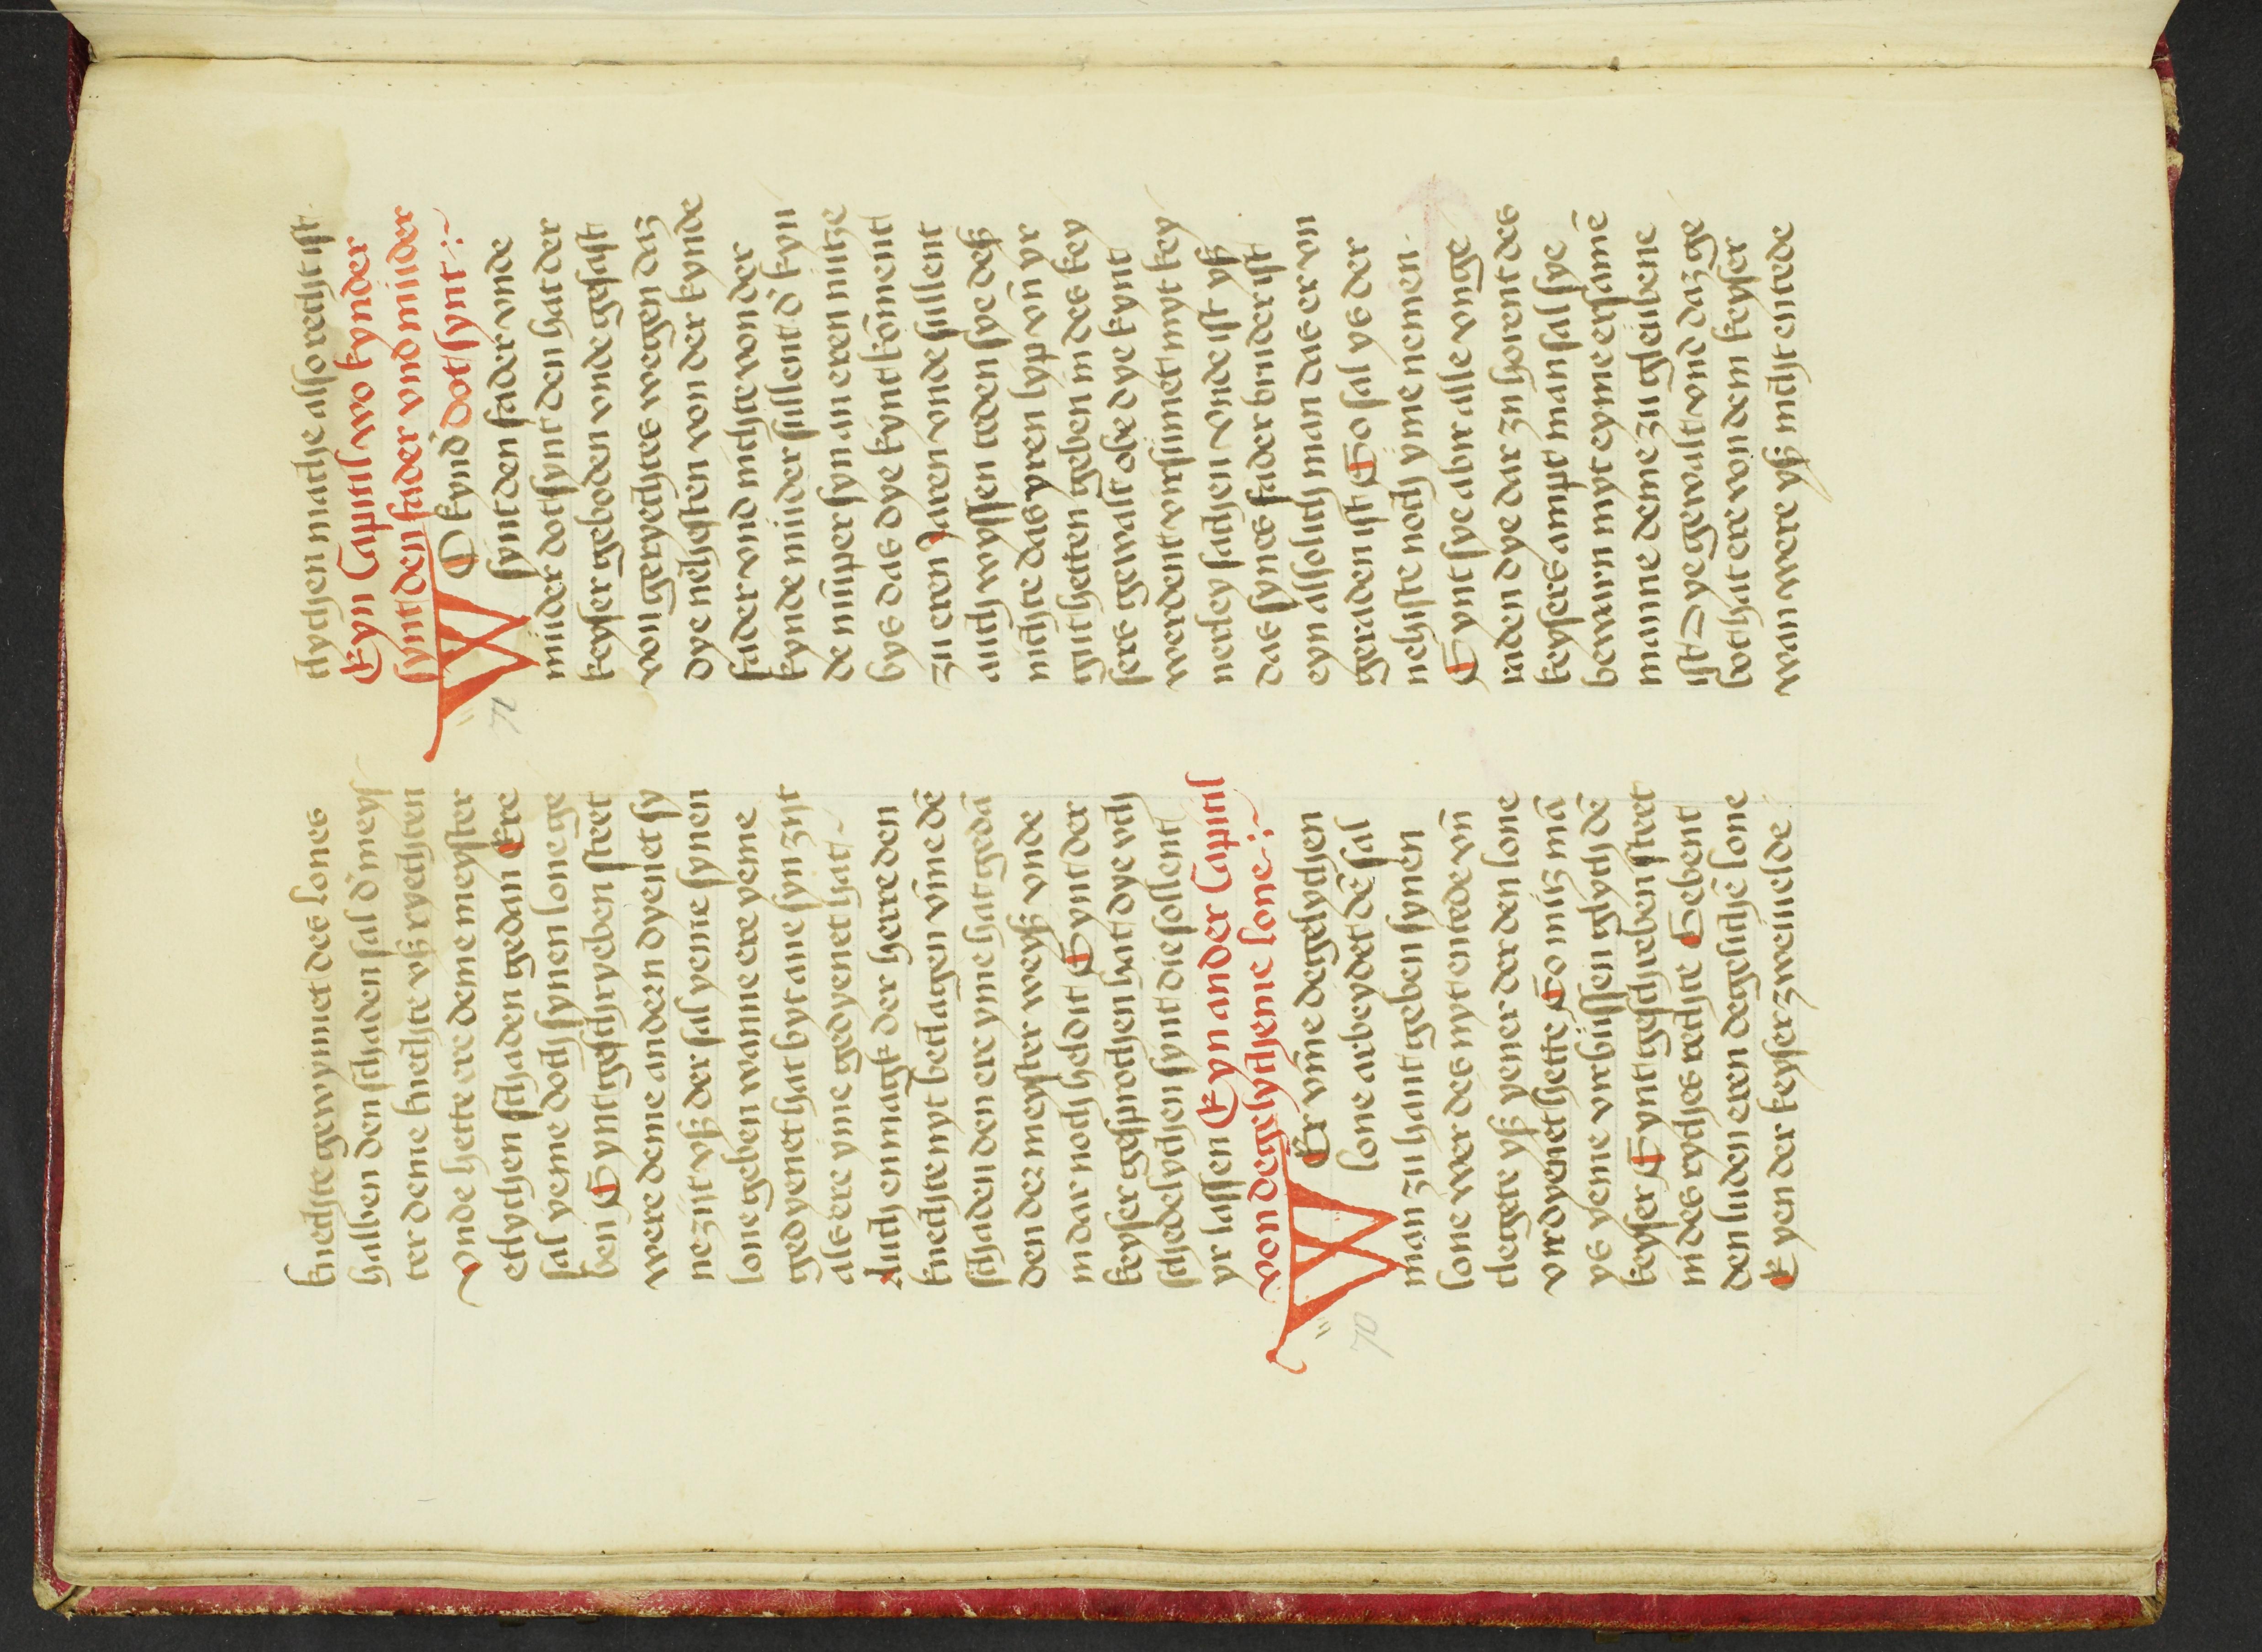 knechte gewynnet des lones
halben den schaden sal d' meys
ter deme knechte vß rychten
Vnde hette ere deme meyster
etlychen schaden gedan Ere
sal yeme doch synen lone ge
ben Synt geschryeben steet
were deme andern dyenet sy
ne zijt vß der sal yeme synen
lone geben wanne ere yeme
gedyenet hat byt ane syn zijt
als ere yme gedyenet hat
Auch en magk der herre den
knechte nyt beclagen vm̄e dē
schaden den ere yme hat gedā
den der meyster weyß vnde
in dar noch heldit Synt der
keyser gesprochen hat dye vch
schedelychen synt die sollent
yr lassen Eyn ander Capitil
von degelycheme lone
WEr vm̄e degelychen
lone arbeydet dē sal
man zu hant geben synen
lone wer des nyt entede vn̄
clegete yß yener der den lone
virdyenet hette So muz mā
ys yeme virbussen glych dē
keyser Synt geschrieben stet
in des ryches rechte Gebent
den luden eren degelichē lone
Eyen der keyser zweinelde
tlychen mache also recht ist
Eyn Capitil wo kynder
synt den fader vnd muder
dot synt
WO kynd'
synt den fader vnde
muder dot synt den hat der
keyser geboden vnde gesast
von gerychtes wegen daz
dye nehesten von der kynde
fader vnd nichte von der
kynde muder sullent d' kyn
de numper syn an eren nutze
bys das dye kynt kōment
zu eren Jaren vnde sullent
auch wyssen reden sye deß
nichte das yren lyp vn̄ yr
gut hetten geben in des key
sers gewalt obe dye kynt
werdent virsumet myt key
nerley sachen vnde ist yß
das synes fader bruder ist
eyn alsolich man das er vn
geraden ist So sal ys der
nehiste noch yme nemen
Synt sye abir alle vnge
raden dye dar zu horent des
keysers ampt man sal sye
bewarn myt eyme ersamē
manne deme zu gleubene
ist Dye gewalt vnd daz ge
bot hat ere von dem keyser
wan were yß nicht entede
70
71